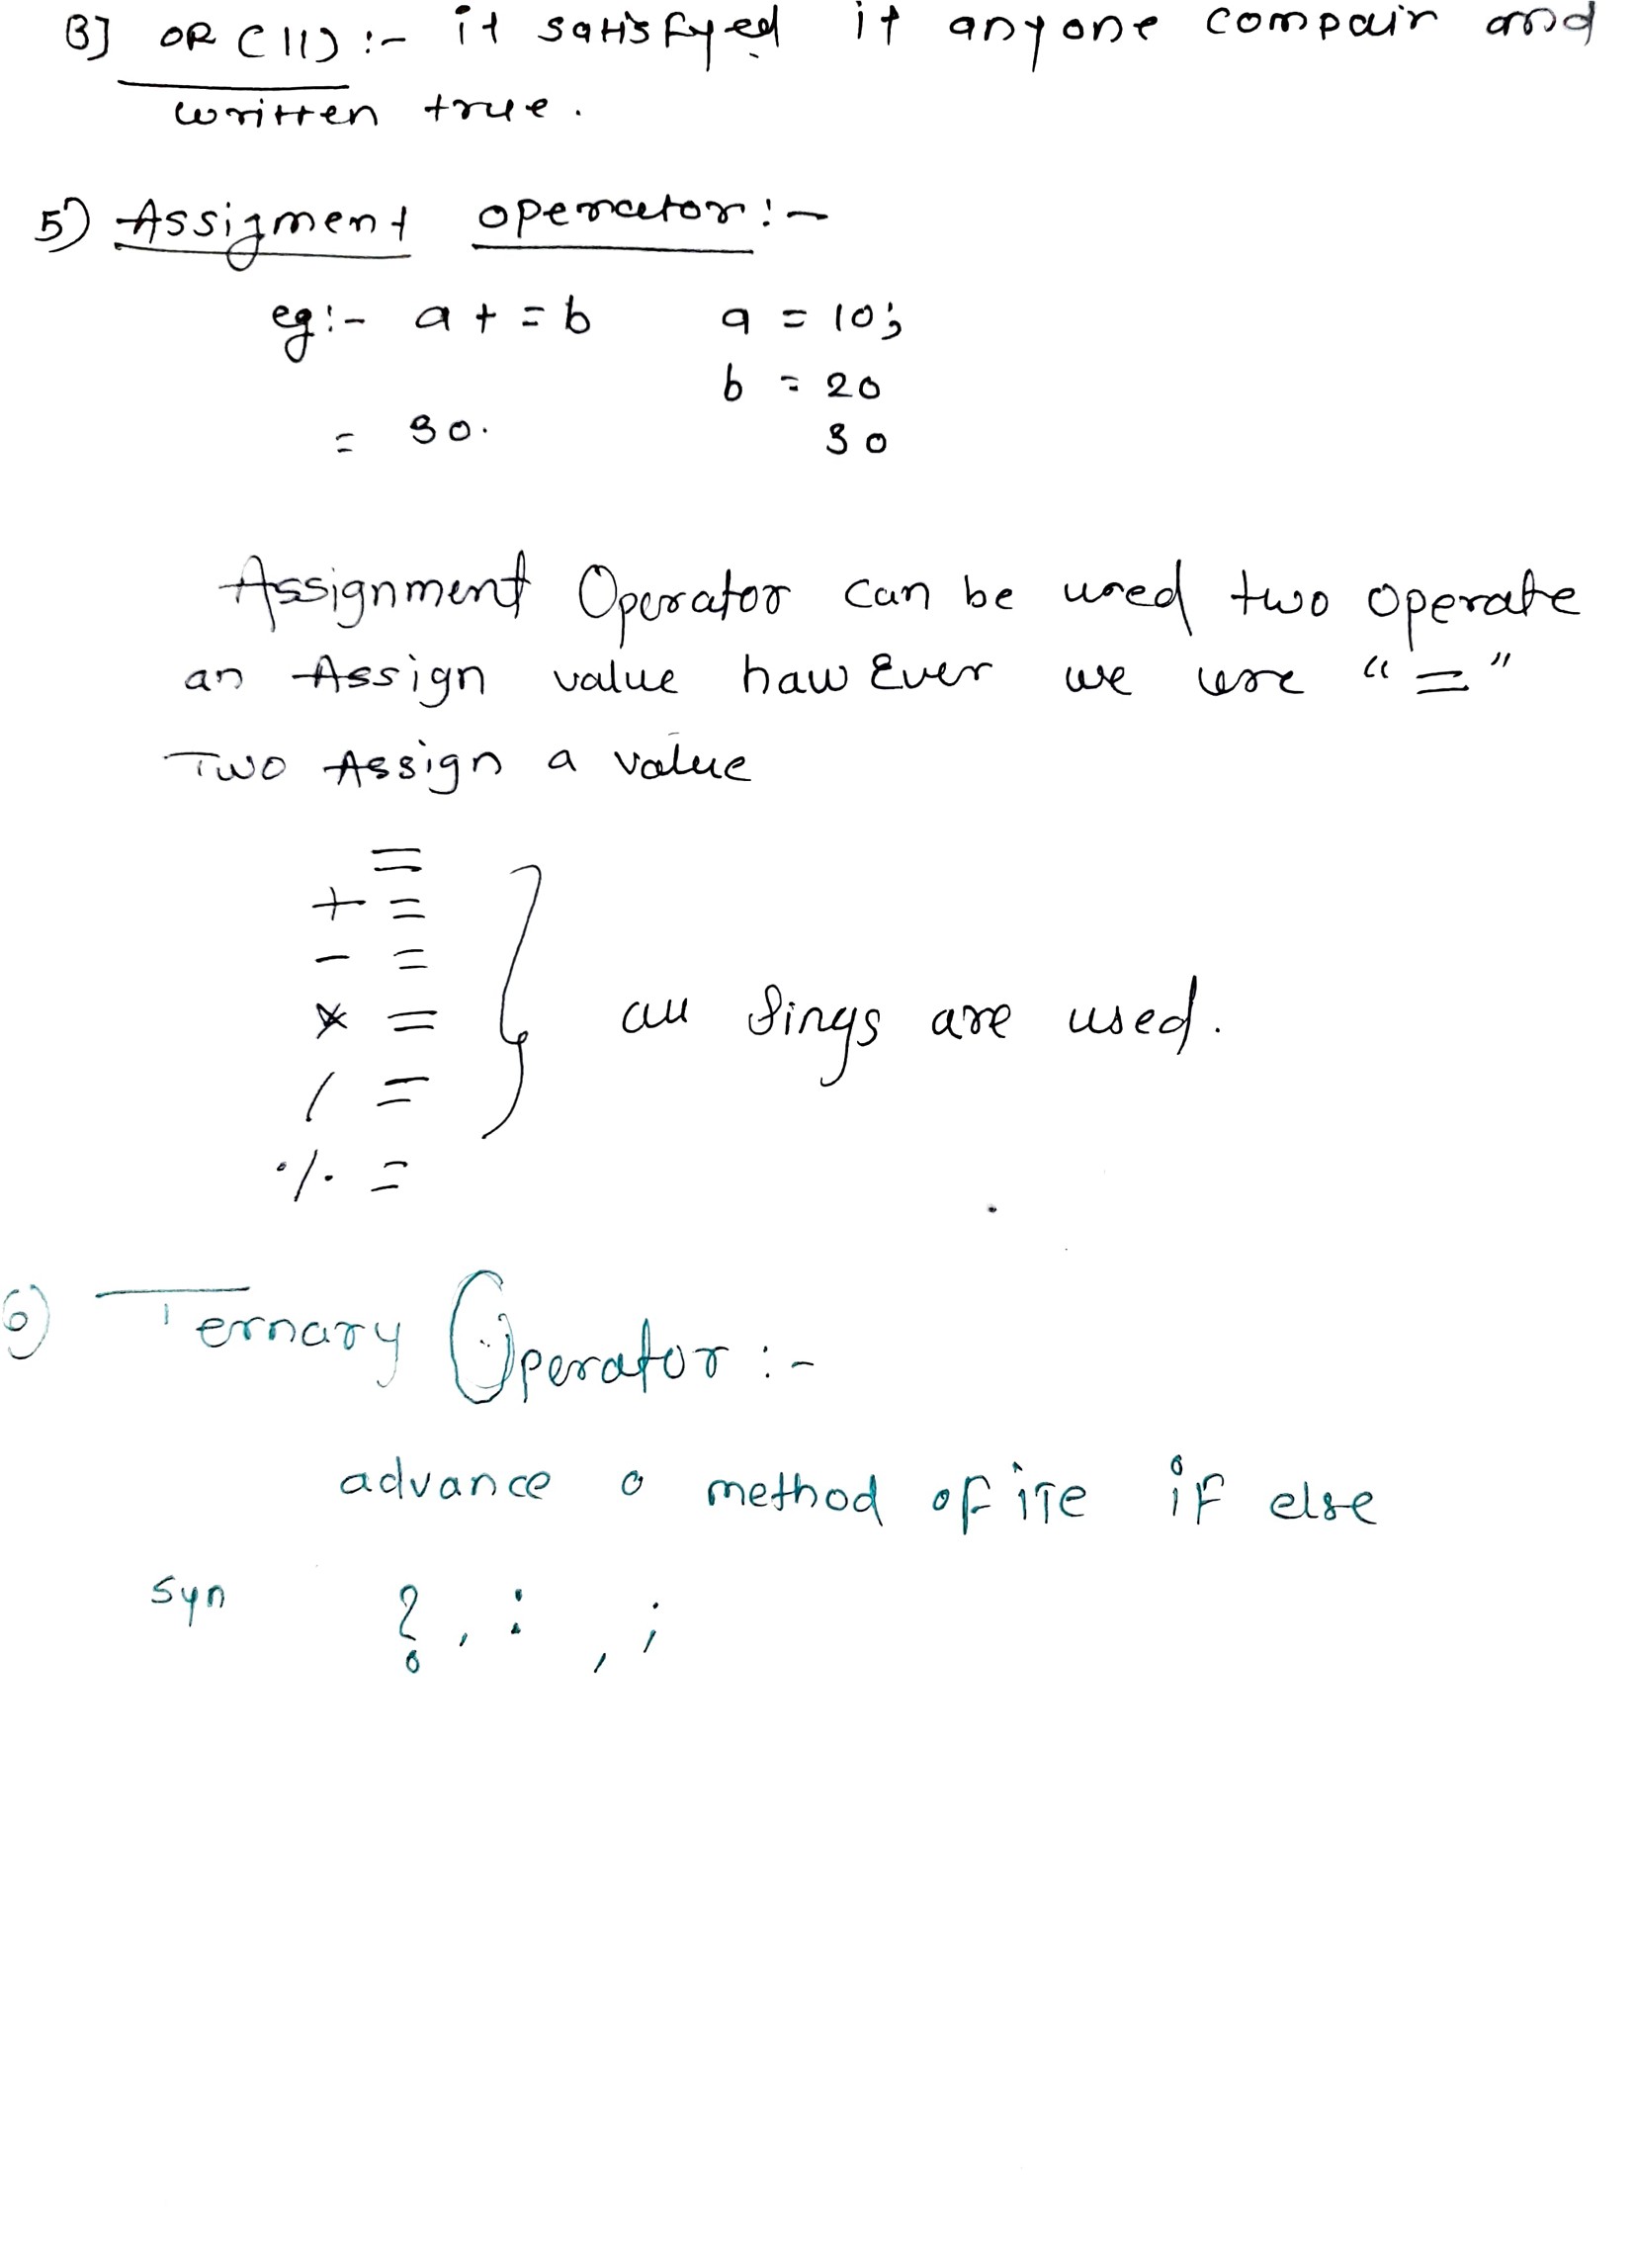 B] OR (||) :- it satisfyed it anyone compair and
written true.
5) Assigment operator :-
eg :- a + = b a = 10;
b = 20
= 30. 30
Assignment Operator can be used two operate
an Assign value hawEver we use "="
Two Assign a value
=
+ =
- =
* = } all Sings are used.
/ =
% =
6) Ternary Operator :-
advance o method of ite if else
syn ? , : , ;